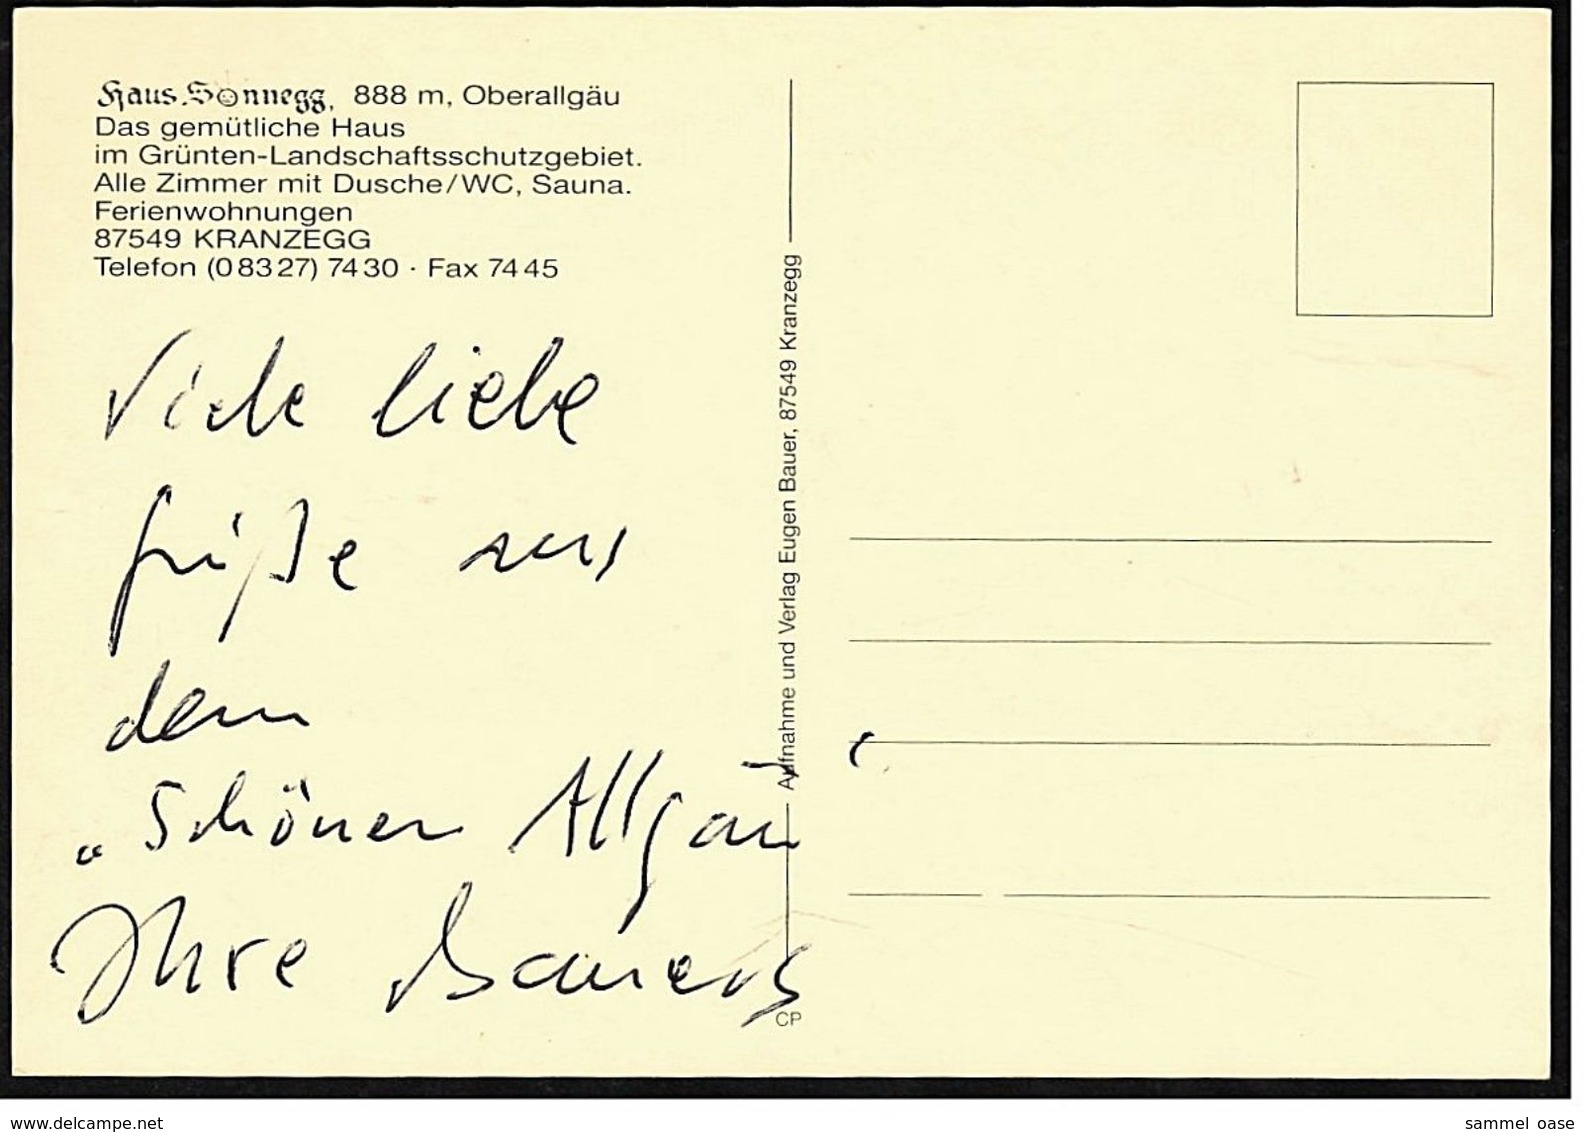 Haus Sonnegg, 888 m, Oberallgäu
Das gemütliche Haus
im Grünten-Landschaftsschutzgebiet.
Alle Zimmer mit Dusche/WC, Sauna.
Ferienwohnungen
87549 KRANZEGG
Telefon (0 83 27) 74 30 · Fax 74 45
Viele liebe
Grüße aus
dem
„Schönen Allgäu“
Ihre Bauers
Aufnahme und Verlag Eugen Bauer, 87549 Kranzegg
CP
www.delcampe.net
sammel_oase